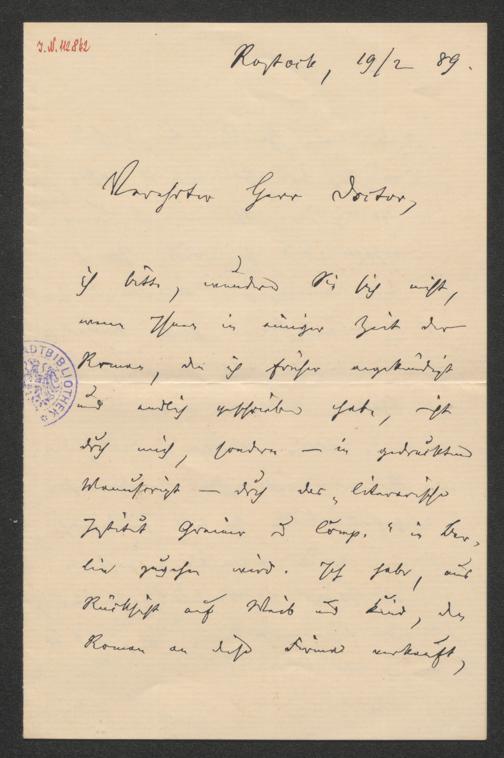 J. N. 112862
Rostock, 19/2 89.
Verehrter Herr Doctor,
ich bitte, wundern Sie sich nicht,
wenn Ihnen in einiger Zeit der
Roman, den ich früher angekündigt
und endlich geschrieben habe, nicht
durch mich, sondern — in gedrucktem
Manuscript — durch das „literarische
Institut Greiner & Comp." in Ber-
lin zugehen wird. Ich habe, aus
Rücksicht auf Weib und Kind, den
Roman an diese Firma verkauft,
STADTBIBLIOTHEK